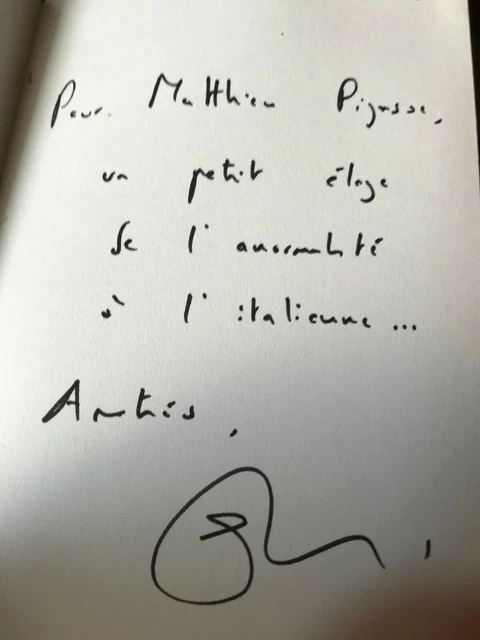 Pour Matthieu Pigasse,
un petit éloge
de l'anormalité
à l'italienne...
Amitiés,